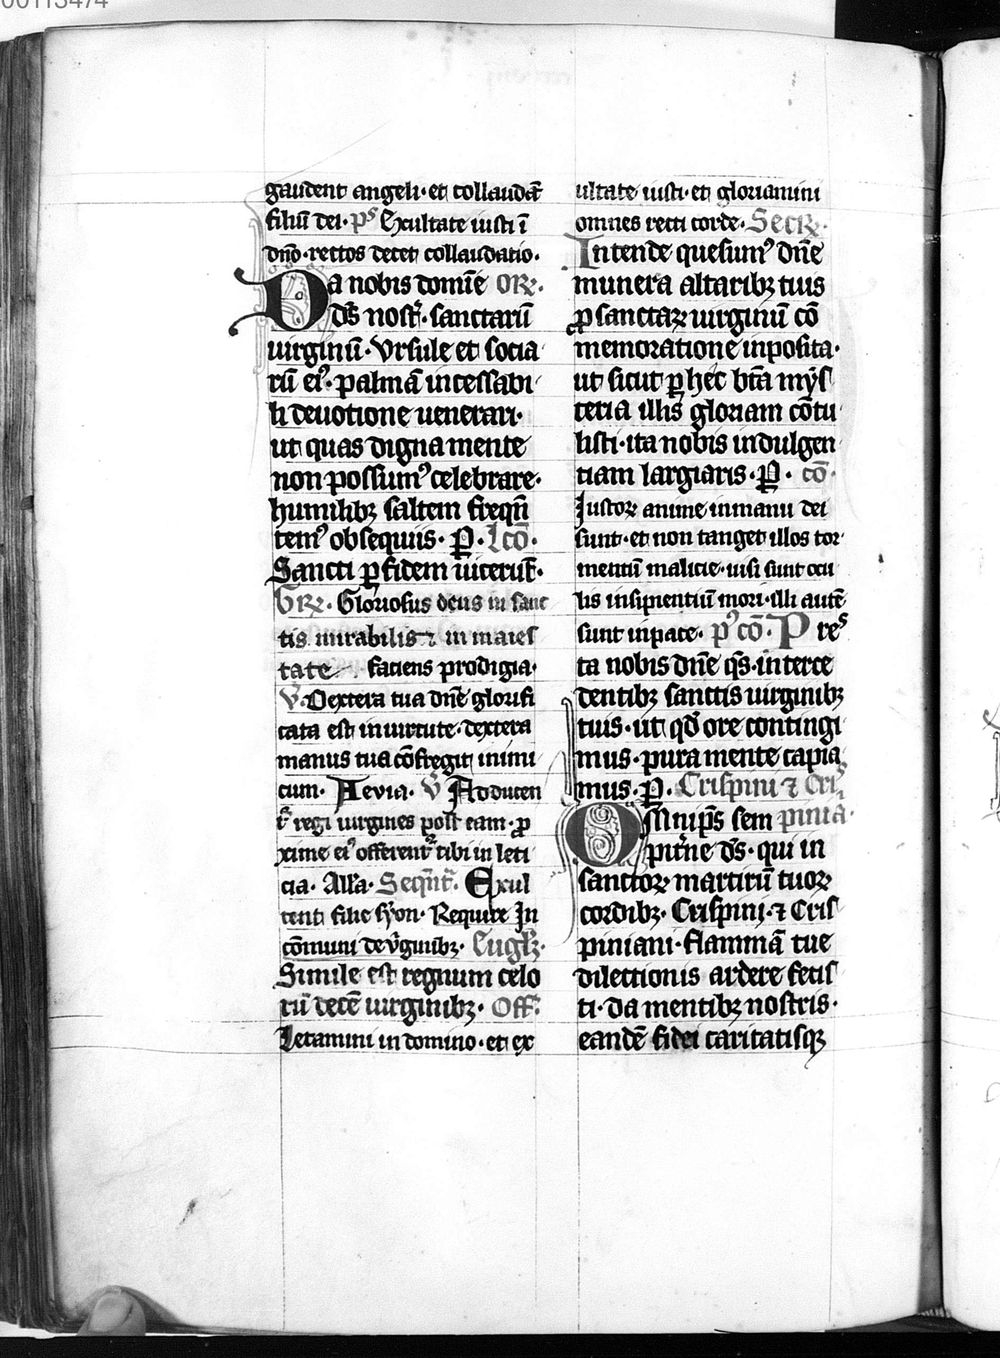 00113474
gaudent angeli·et collaudāt
filiū dei·ps Exultate iusti ī
dn̄o·rectos decet collaudatio·
Da nobis domīe OR̄·
ds̄ nostr̄·sanctarū
uirginū·Vrsule et socia
rū ei9·palmā incessabi
li deuotione uenerari·
ut quas digna mente
non possum9 celebrare·
humilibꝫ saltem freqn̄
tem9 obsequiis·ꝑ·Lcō·
Sancti ꝑ fidem uicerūt·
GR̄·Gloriosus deus in sanc
tis mirabilis ⁊ in maies
tate faciens prodigia·
V̄·Dextera tua dn̄e glorifi
cata est in uirtute·dextera
manus tua cōfregit inimi
cum·Aeuia·V̄ Adducen
tr̄ regi uirgines post eam·ꝓ
xime ei9 offerentr̄ tibi in leti
cia·All'a·Seqn̄t̄·Exul
tenti filie syon·Require In
cōmuni de v̄ginibꝫ·Eugl̄·
Simile est regnum celo
rū decē uirginibꝫ·Off̄·
Letamini in domino·et ex
ultate iusti·et gloriamini
omnes recti corde·Secr̄·
Intende quesum9 dn̄e
munera altaribꝫ tuis
ꝓ sanctaꝝ uirginū cō
memoratione inposita·
ut sicut ꝑ hec btā mys
teria illis gloriam cōtu
listi·ita nobis indulgen
tiam largiaris·ꝑ·cō·
Iustoꝝ anime in manu dei
sunt·et non tanget illos tor
mentū malicie·uisi sunt ocu
lis insipientiū mori·illi autē
sunt in pace·p9cō·Pres
ta nobis dn̄e qs̄·interce
dentibꝫ sanctis uirginibꝫ
tuis·ut qd̄ ore contingi
mus·pura mente capia
mus·ꝑ·Crispini ⁊ Cris
Omnip̄s sem piniani·
pitr̄ne ds̄·qui in
sanctoꝝ martirū tuoꝝ
cordibꝫ·Crispini·⁊ Cris
piniani·flammā tue
dilectionis ardere fecis
ti·da mentibꝫ nostris·
eandē fidei caritatisqꝫ